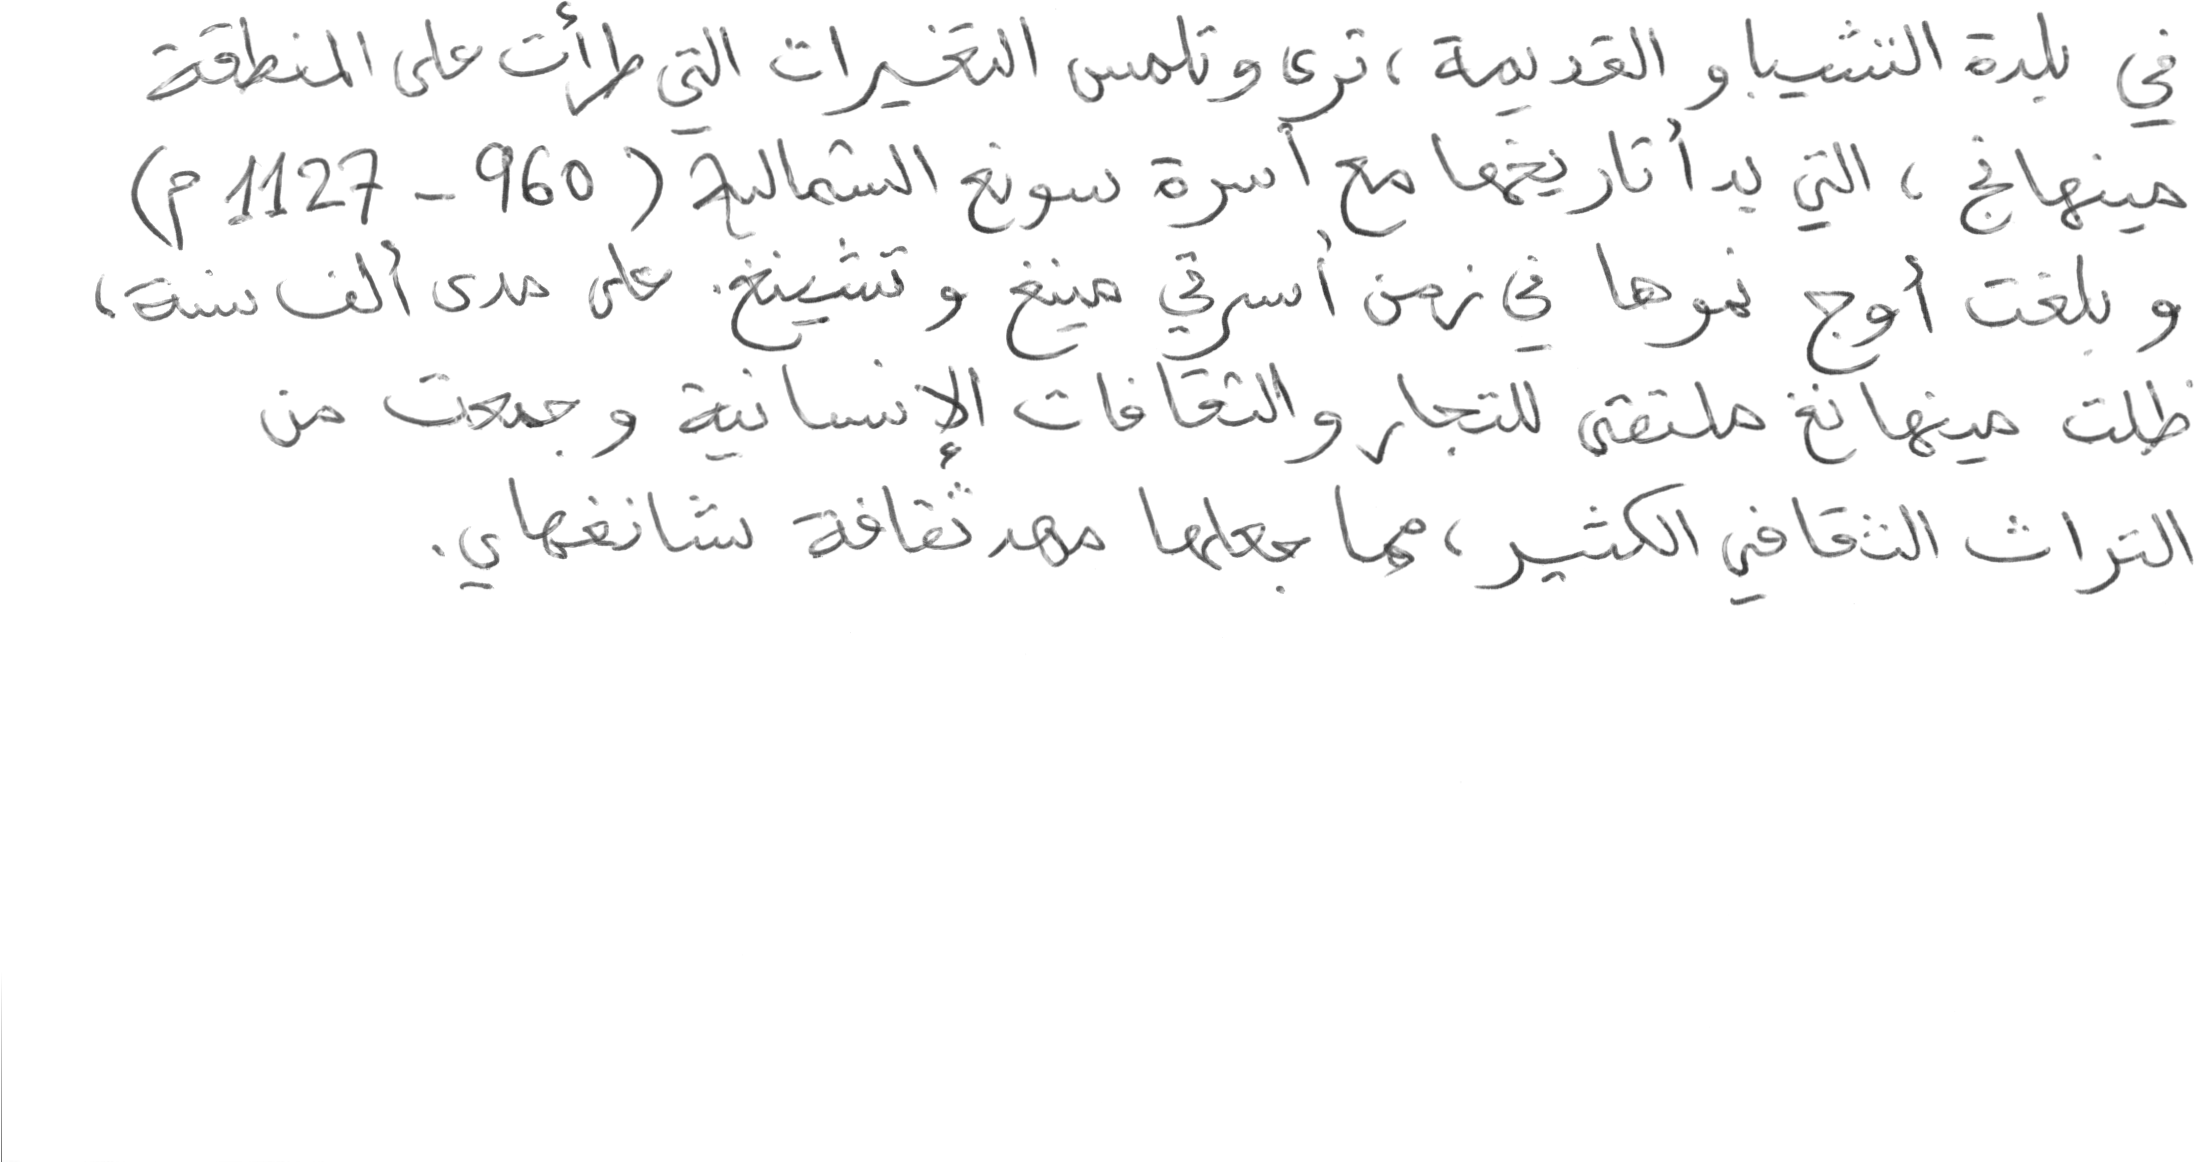 في بلدة التشيباو القديمة، ترى وتلمس التغيرات التي طرأت على المنطقة
مينهانج، التي بدأ تاريخها مع أسرة سونغ الشمالية (960 - 1127 م)
وبلغت أوج نموها في زمن أسرتي مينغ وتشينغ. على مدى ألف سنة،
ظلت مينهانغ ملتقى للتجار والثقافات الإنسانية وجمعت من
التراث الثقافي الكثير، مما جعلها مهد ثقافة شانغهاي.